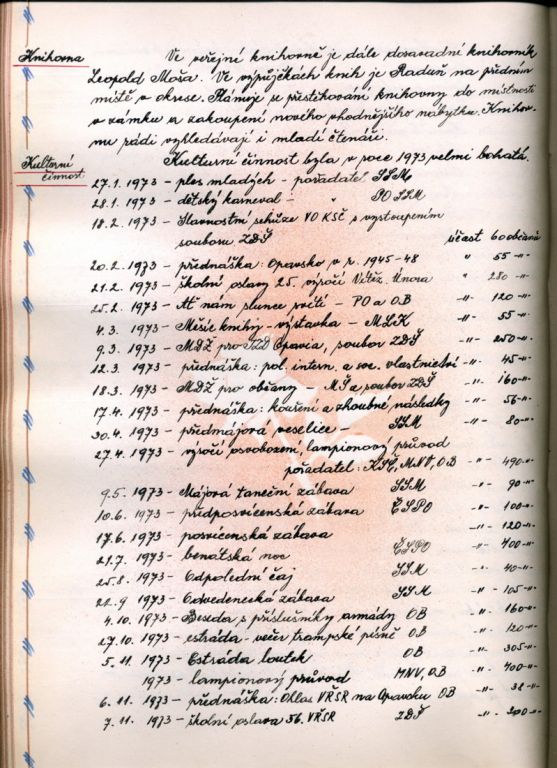 Knihovna Ve veřejní knihovně je dále dosavadní knihovník
Leopold Moša. Ve výpůjčkách knih je Raduň na předním
místě v okrese. Plánuje se přestěhování knihovny do místnosti
v zámku a zakoupení nového vhodnějšího nábytku. Knihov-
nu rádi vyhledávají i mladí čtenáři.
Kulturní činnost Kulturní činnost byla v roce 1973 velmi bohatá.
27.1. 1973 - ples mladých - pořadatel SSM
28.1. 1973 - dětský karneval - " PO SSM
18.2. 1973 - Slavnostní schůze VO KSČ s vystoupením
souboru ZDŠ účast 60 občanů
20.2. 1973 - přednáška: Opavsko v r. 1945-48 " 55 -"-
21.2. 1973 - školní oslavy 25. výročí Vítěz. Února " 280 -"-
25.2. 1973 - Ať nám slunce svítí - PO a OB -"- 120 -"-
4.3. 1973 - Měsíc knihy - výstavka - MLK -"- 55 -"-
9.3. 1973 - MDŽ pro JZD Opavia, soubor ZDŠ -"- 250 -"-
12.3. 1973 - přednáška: pol. intern. a soc. vlastnictví -"- 45 -"-
18.3. 1973 - MDŽ pro občany - MŠ a soubor ZDŠ -"- 160 -"-
17.4. 1973 - přednáška: kouření a zhoubné následky -"- 56 -"-
30.4. 1973 - předmájová veselice - SSM -"- 80 -"-
27.4. 1973 - výročí osvobození, lampionový průvod
pořadatel: KSČ, MNV, OB -"- 490 -"-
9.5. 1973 - Májová taneční zábava SSM -"- 90 -"-
10.6. 1973 - předposvícenská zábava ČSPO -"- 100 -"-
17.6. 1973 - posvícenská zábava -"- 120 -"-
21.7. 1973 - benátská noc ČSPO -"- 400 -"-
25.8. 1973 - Odpolední čaj SSM -"- 40 -"-
22.9 1973 - Odvedenecká zábava SSM -"- 105 -"-
4.10. 1973 - Beseda s příslušníky armády OB -"- 160 -"-
27.10. 1973 - estráda - večer trampské písně OB -"- 120 -"-
5.11. 1973 - Estráda loutek OB -"- 305 -"-
1973 - lampionový průvod MNV, OB -"- 400 -"-
6.11. 1973 - přednáška: Ohlas VŘSR na Opavsku OB -"- 32 -"-
7.11. 1973 - školní oslava 56. VŘSR ZDŠ -"- 300 -"-